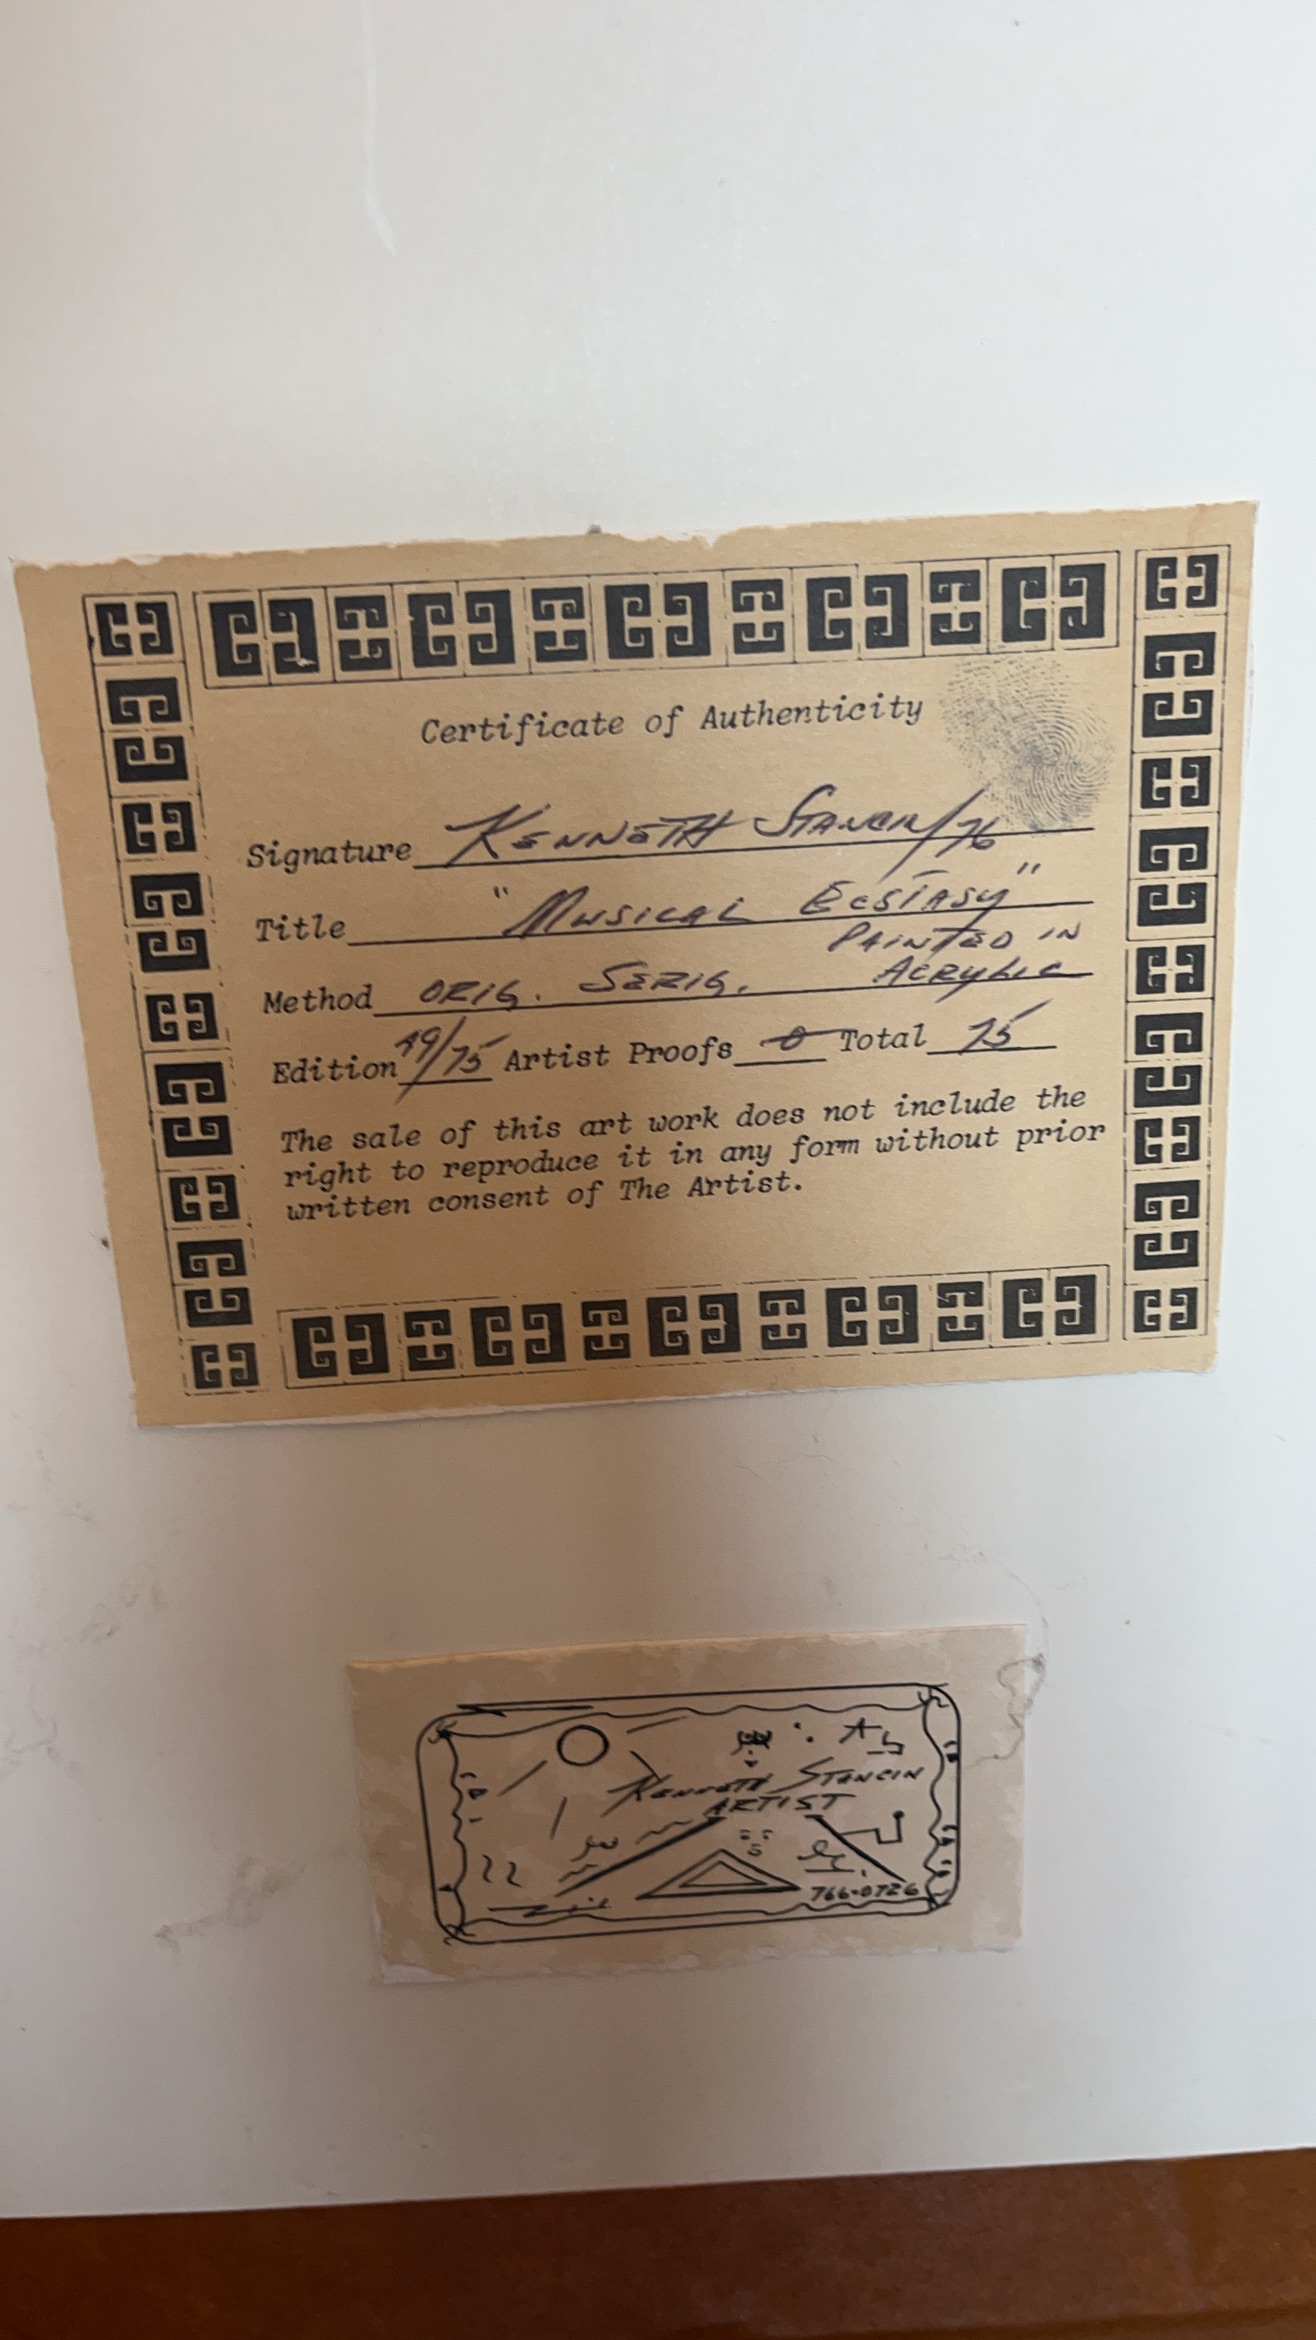 Certificate of Authenticity
Signature KENNETH STANCIN/76
Title "MUSICAL ECSTASY"
PAINTED IN
Method ORIG. SERIG. ACRYLIC
Edition 49/75 Artist Proofs 0 Total 75
The sale of this art work does not include the
right to reproduce it in any form without prior
written consent of The Artist.
KENNETH STANCIN
ARTIST
766-0726